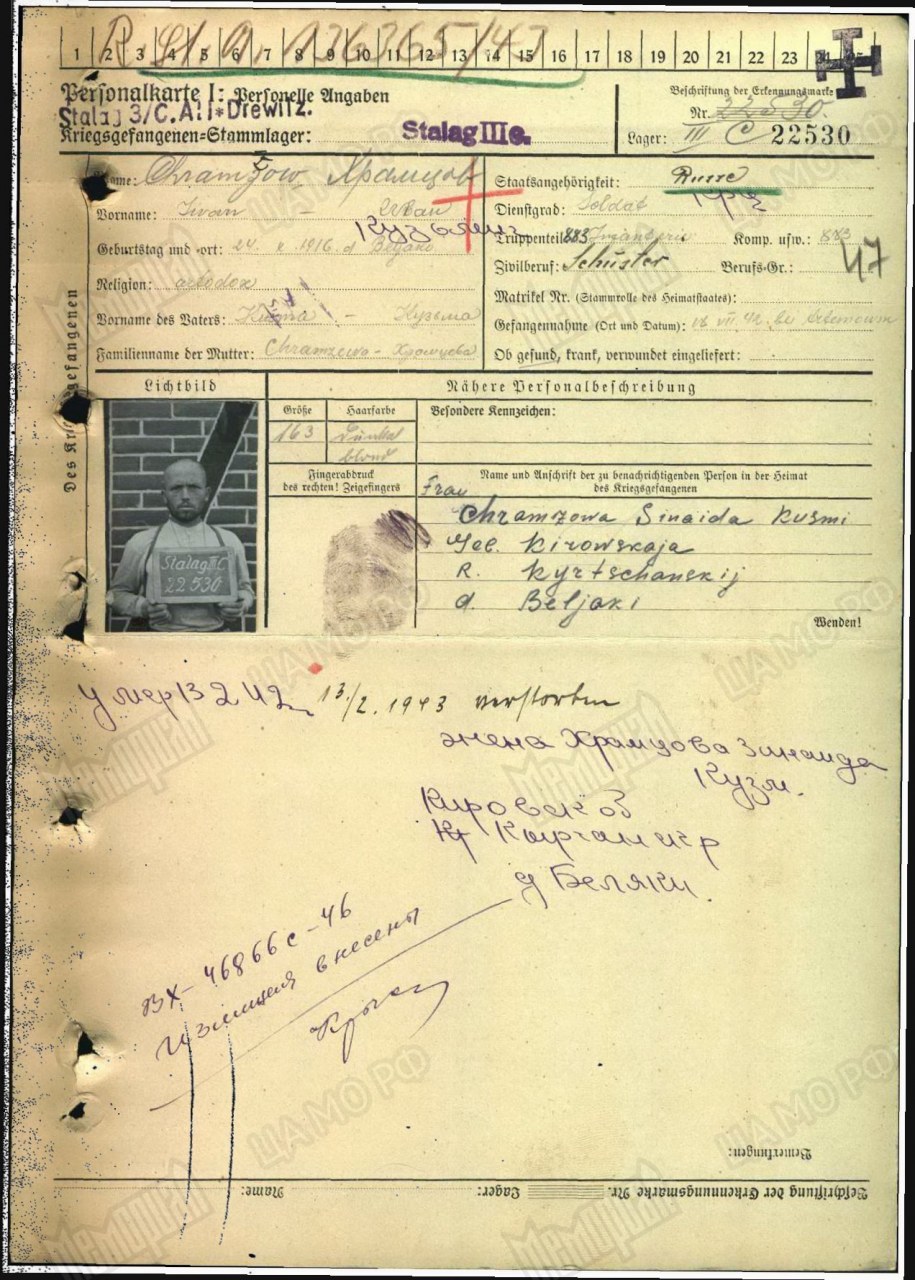 R 91 a. 126365/43
1 2 3 4 5 6 7 8 9 10 11 12 13 14 15 16 17 18 19 20 21 22 23
Personalkarte I: Personelle Angaben
Stalag 3/C. Alt-Drewitz.
Kriegsgefangenen-Stammlager: Stalag III c.
Beschriftung der Erkennungsmarke
Nr. 22530.
Lager: III C 22530
Des Kriegsgefangenen
Name: Chramzow, Храмцов
Vorname: Iwan - Иван
Кузьмич
Geburtstag und -ort: 1916. d Beljaki
Religion: ortodox
Vorname des Vaters: Kusma - Кузьма
Familienname der Mutter: Chramzewa - Храмцева
Staatsangehörigkeit: Russe
Dienstgrad: Soldat
Truppenteil: 883 Infanterie Komp. usw.: 883
Zivilberuf: Schuster Berufs-Gr.: 47
Matrikel Nr. (Stammrolle des Heimatstaates):
Gefangennahme (Ort und Datum): 16 VII. 42. bei Artemowsk
Ob gesund, krank, verwundet eingeliefert:
Lichtbild
Stalag III C
22530
Nähere Personalbeschreibung
Größe Haarfarbe Besondere Kennzeichen:
163 Dunkel
blond
Fingerabdruck
des rechten! Zeigefingers
Name und Anschrift der zu benachrichtigenden Person in der Heimat
des Kriegsgefangenen
Frau
Chramzowa Sinaida Kusmi
Geb. Kirowskaja
R. Kyrtschanskij
d. Beljaki
Wenden!
умер 13 2 42 13./2. 1943 verstorben
жена Храмцова Зинаида
Кузм.
Кировск об
Кырчанск р
д Беляки
ВХ-46866с-46
изменения внесены
Bemerkungen:
Name: Lager: Beschriftung der Erkennungsmarke Nr.
ЦАМО РФ
Мемориал